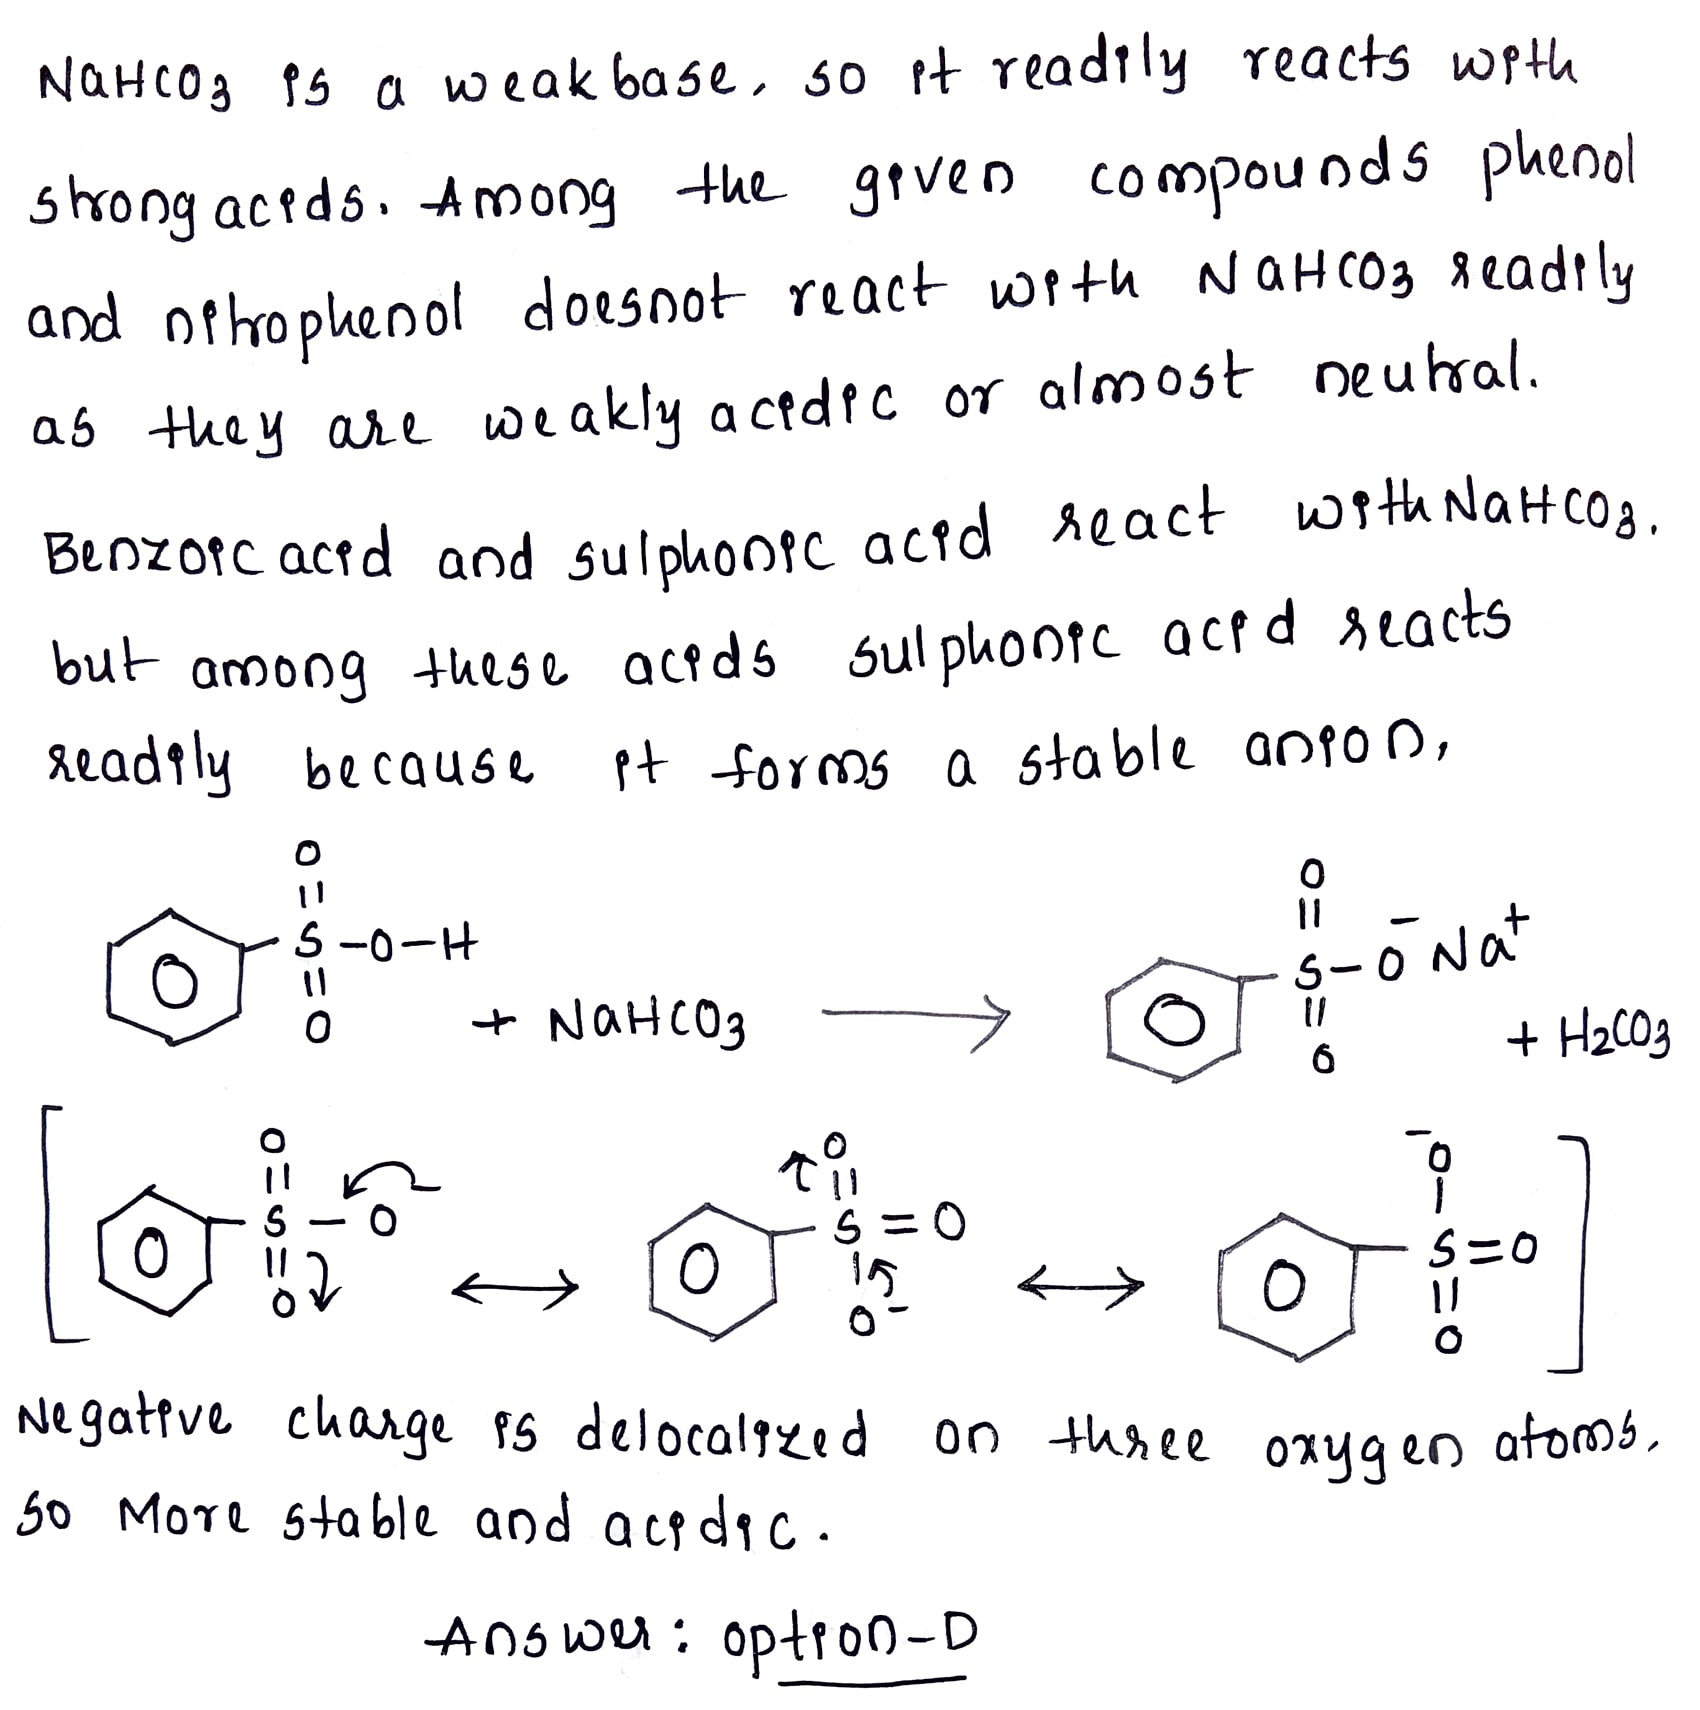 NaHCO3 is a weak base, so it readily reacts with
strong acids. Among the given compounds phenol
and nitrophenol doesnot react with NaHCO3 readily
as they are weakly acidic or almost neutral.
Benzoic acid and sulphonic acid react with NaHCO3.
but among these acids sulphonic acid reacts
readily because it forms a stable anion,
O
||
S-O-H
||
O
+ NaHCO3 ⟶
O
||
S-O⁻ Na⁺
||
O
+ H2CO3
[
O
||
S-O
||
O
⟷
O
||
S=O
|
O⁻
⟷
⁻O
|
S=O
||
O
]
Negative charge is delocalized on three oxygen atoms,
so More stable and acidic.
Answer: option-D